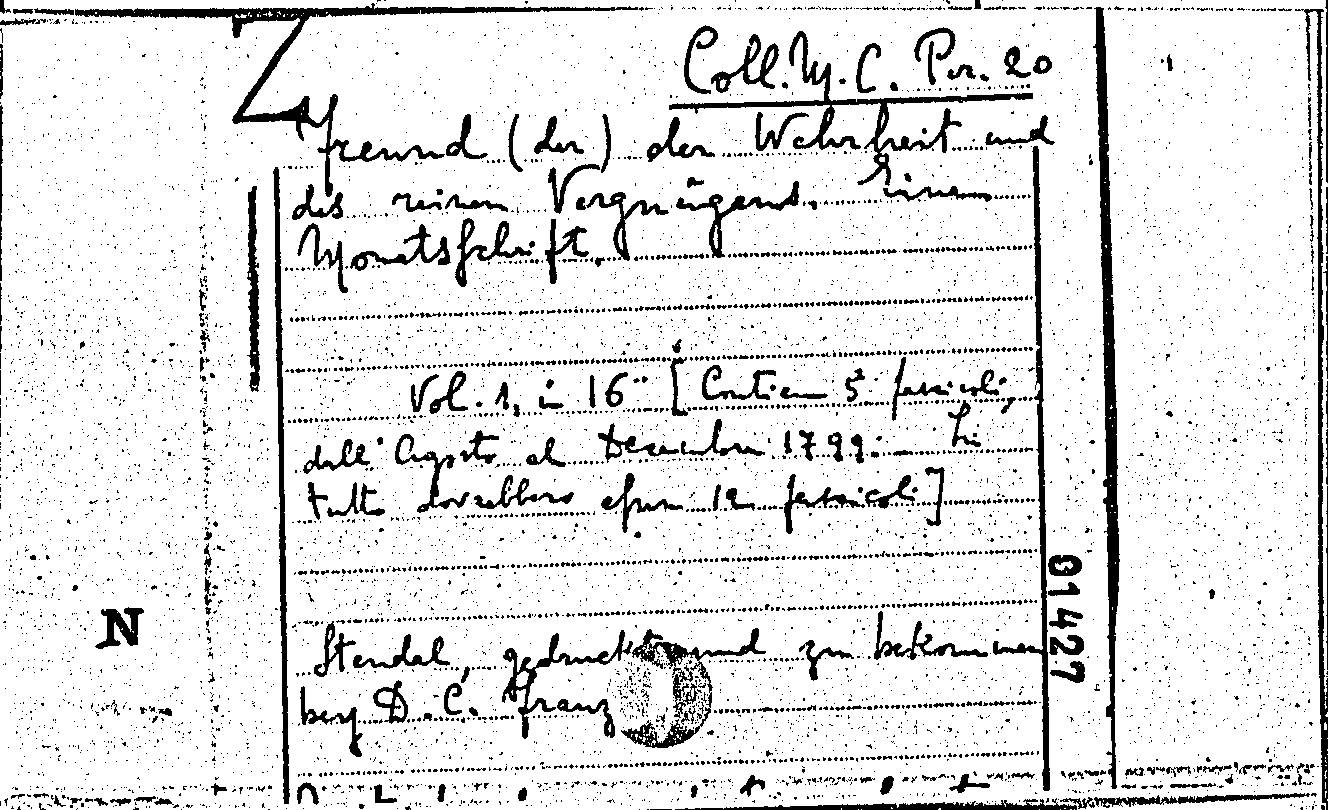 Z
Coll. M. C. Per. 20
Freund (der) der Wahrheit und
des reinen Vergnügens. Eine
Monatsschrift.
Vol. 1, in 16° [Contiene 5 fascicoli,
dall'Agosto al Decembre 1799. In
tutto dovrebbero essere 12 fascicoli]
N
01427
Stendal, gedruckt und zu bekommen
bey D. C. Franz